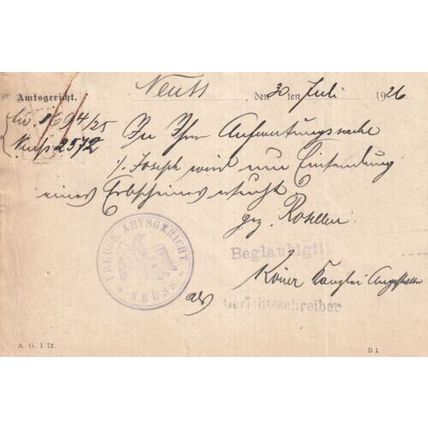 Neuss, den 30ten Juli 1926
Amtsgericht.
Aw. 1694/25
Neuss 2572
In Ihrer Aufwertungssache
./. Joseph wird um Einsendung
eines Erbscheines ersucht
gez. Rosellen
PREUSS. AMTSGERICHT
* NEUSS *
Beglaubigt!
Kanzlei Angestellter
als Gerichtsschreiber
A. G. I 72.
D I.